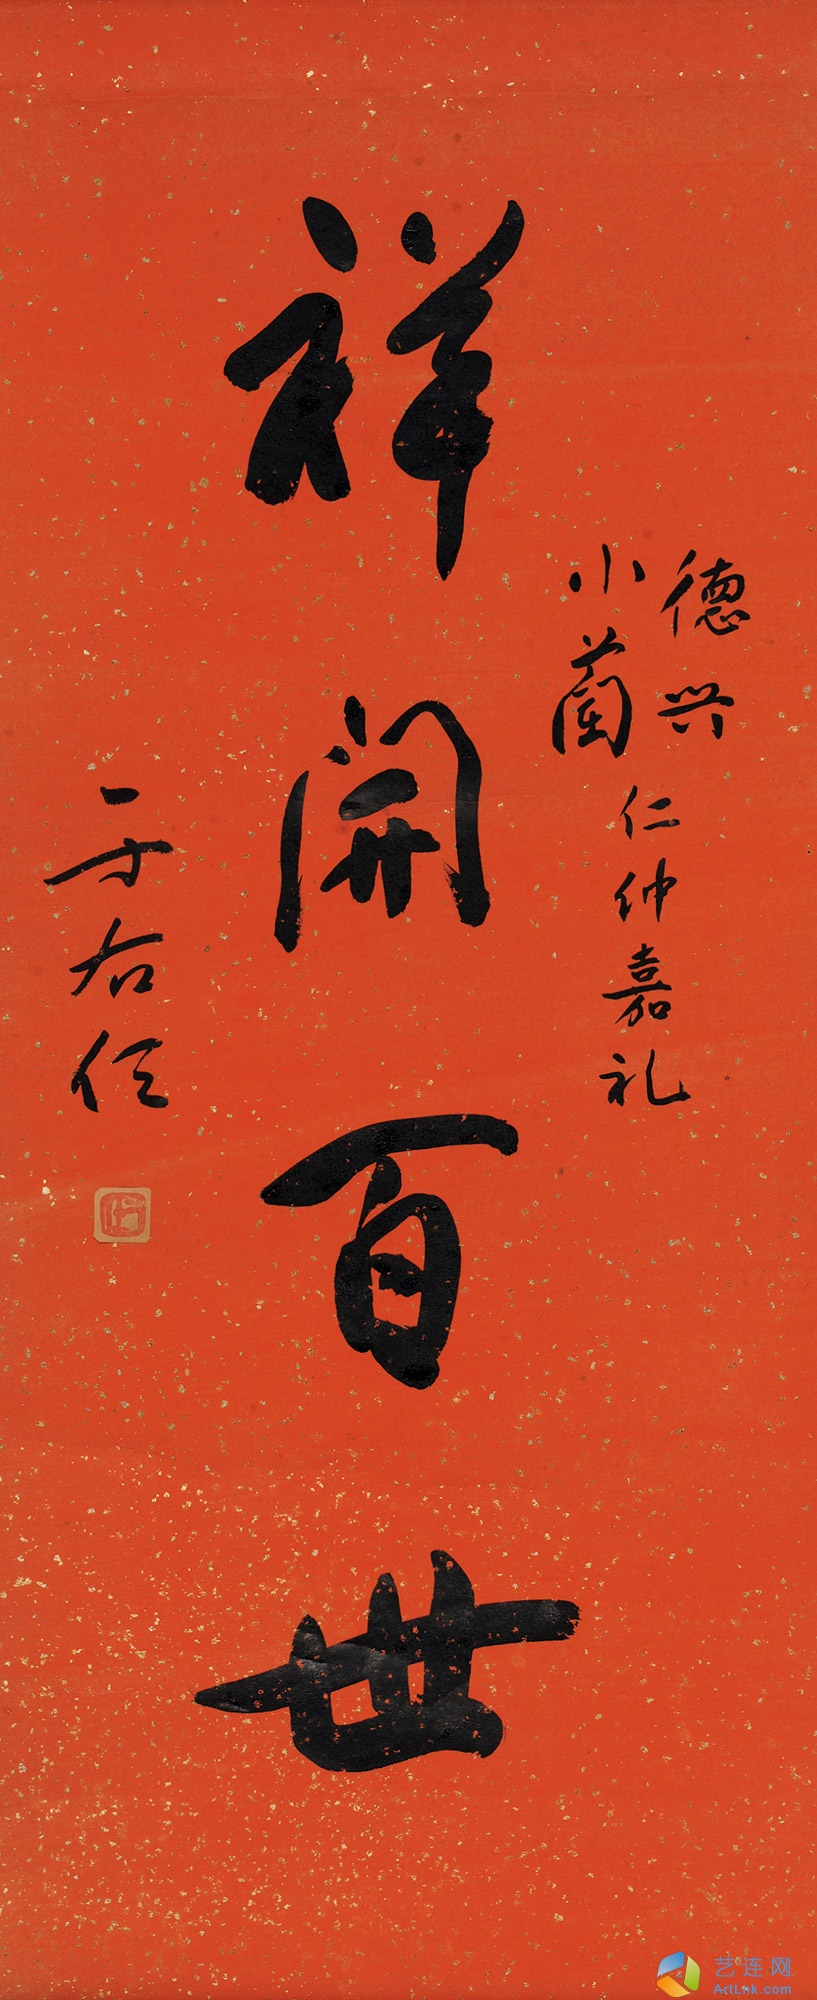 德兴
小蘭
仁仲嘉礼
祥開百世
于右任
艺连网
ActLnk.com